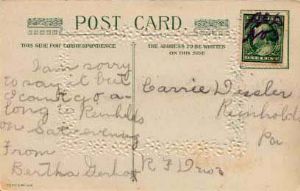 POST CARD.
THIS SIDE FOR CORRESPONDENCE
THE ADDRESS TO BE WRITTEN
ON THIS SIDE
I am sorry
to say it but
I can't go a-
long to Reinholds
on Sat evening
From
Bertha
Carrie
Reinholds
Pa
R F D no